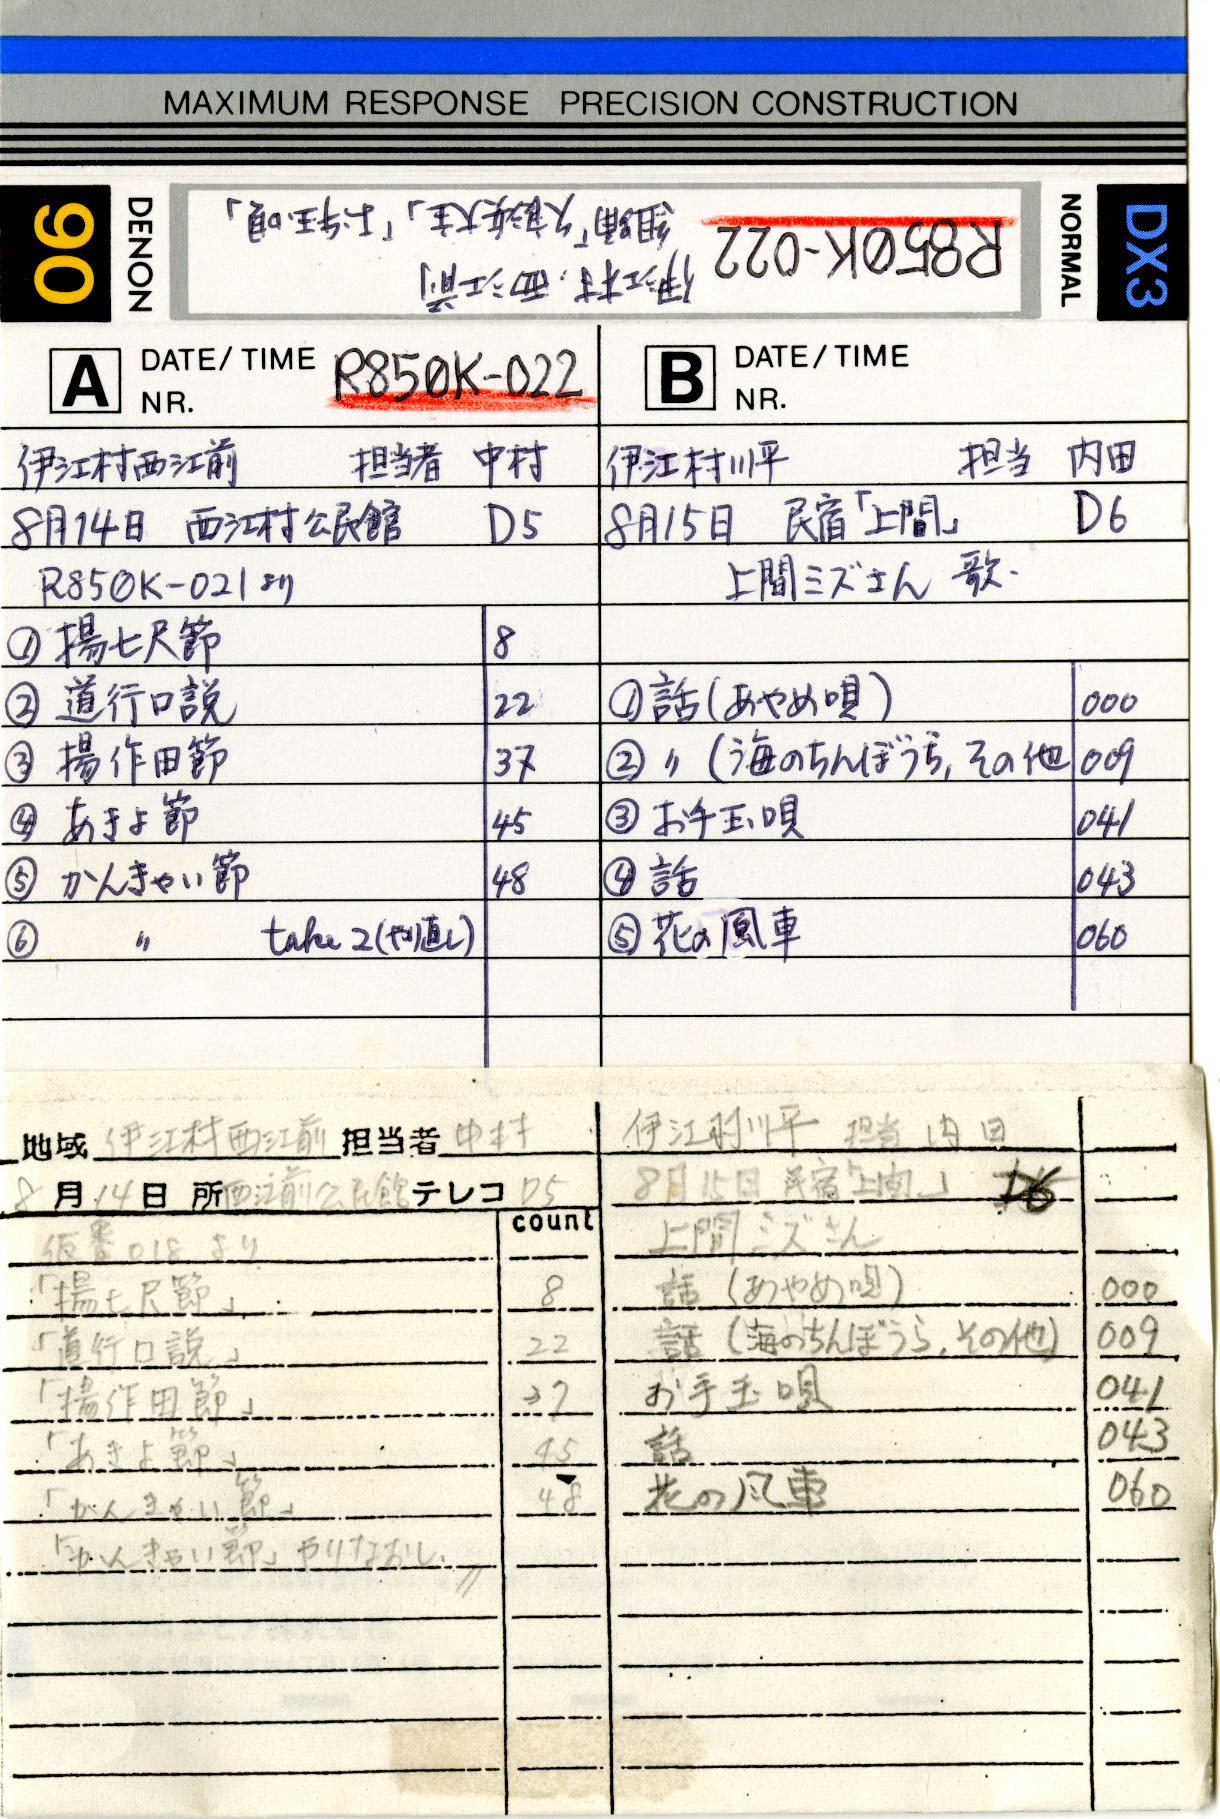 MAXIMUM RESPONSE PRECISION CONSTRUCTION
90
DENON
R850K-022
伊江村、西江前
組踊「久志大主」「お手玉唄」
NORMAL
DX3
A DATE/TIME NR. R850K-022
伊江村西江前 担当者 中村
8月14日 西江村公民館 D5
R850K-021より
① 揚七尺節 8
② 道行口説 22
③ 揚作田節 37
④ あきよ節 45
⑤ かんきゃい節 48
⑥ 〃 take2(やり直し)
B DATE/TIME NR.
伊江村川平 担当 内田
8月15日 民宿「上間」 D6
上間ミズさん 歌.
① 話(あやめ唄) 000
② 〃(海のちんぼうら,その他 009
③ お手玉唄 041
④ 話 043
⑤ 花の風車 060
地域 伊江村西江前 担当者 中村
8月14日 所 西江前公民館 テレコ D5
count
仮番018より
「揚七尺節」 8
「道行口説」 22
「揚作田節」 37
「あきよ節」 45
「かんきゃい節」 48
「かんきゃい節」やりなおし
伊江村川平 担当 内田
8月15日 民宿「上間」 D6
上間ミズさん
話(あやめ唄) 000
話(海のちんぼうら,その他) 009
お手玉唄 041
話 043
花の風車 060